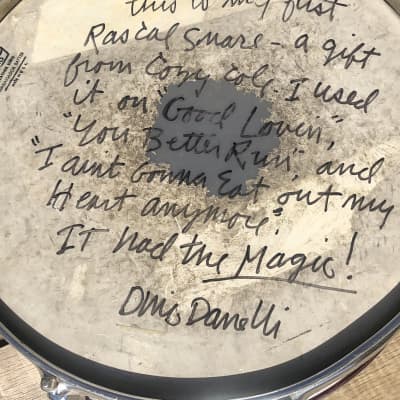 this is my first
Rascal Snare - a gift
from Cozy Cole. I used
it on "Good Lovin",
"You Better Run", and
"I aint Gonna Eat out my
Heart anymore".
IT had the Magic!
Dino Danelli